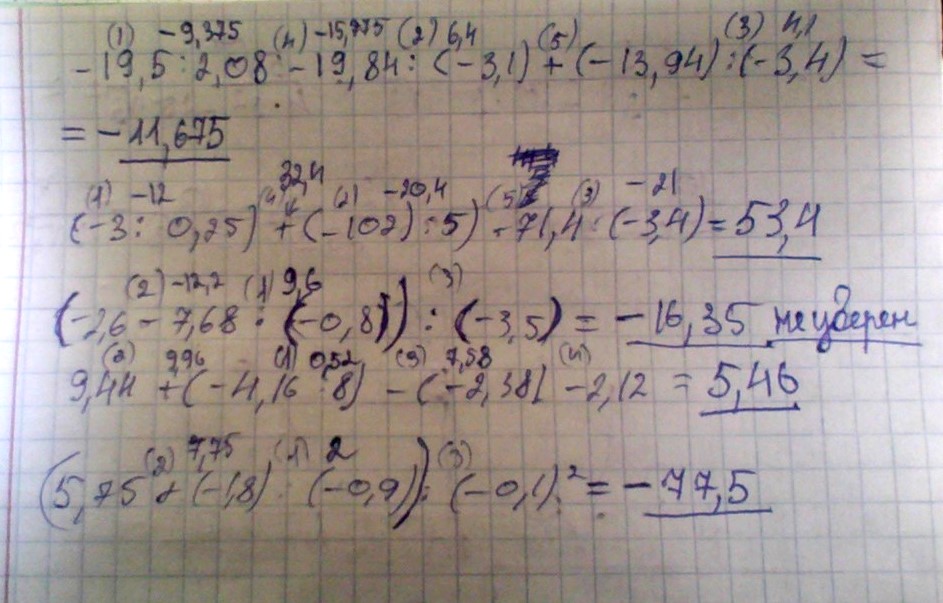 (1) -9,375 (4) -15,775 (2) 6,4 (5) (3) 4,1
-19,5 : 2,08 - 19,84 : (-3,1) + (-13,94) : (-3,4) =
= -11,675
(1) -12 (4) 32,4 (2) -20,4 (5) (3) -21
(-3 : 0,25) + (-102) : 5) - 71,4 : (-3,4) = 53,4
(2) -12,2 (1) 9,6 (3)
(-2,6 - 7,68 : (-0,8)) : (-3,5) = -16,35 не уверен
(2) 9,96 (1) 0,52 (3) 7,58 (4)
9,44 + (-4,16 : 8) - (-2,38) - 2,12 = 5,46
(2) 7,75 (1) 2 (3)
(5,75 + (-1,8) : (-0,9)) : (-0,1)² = -77,5